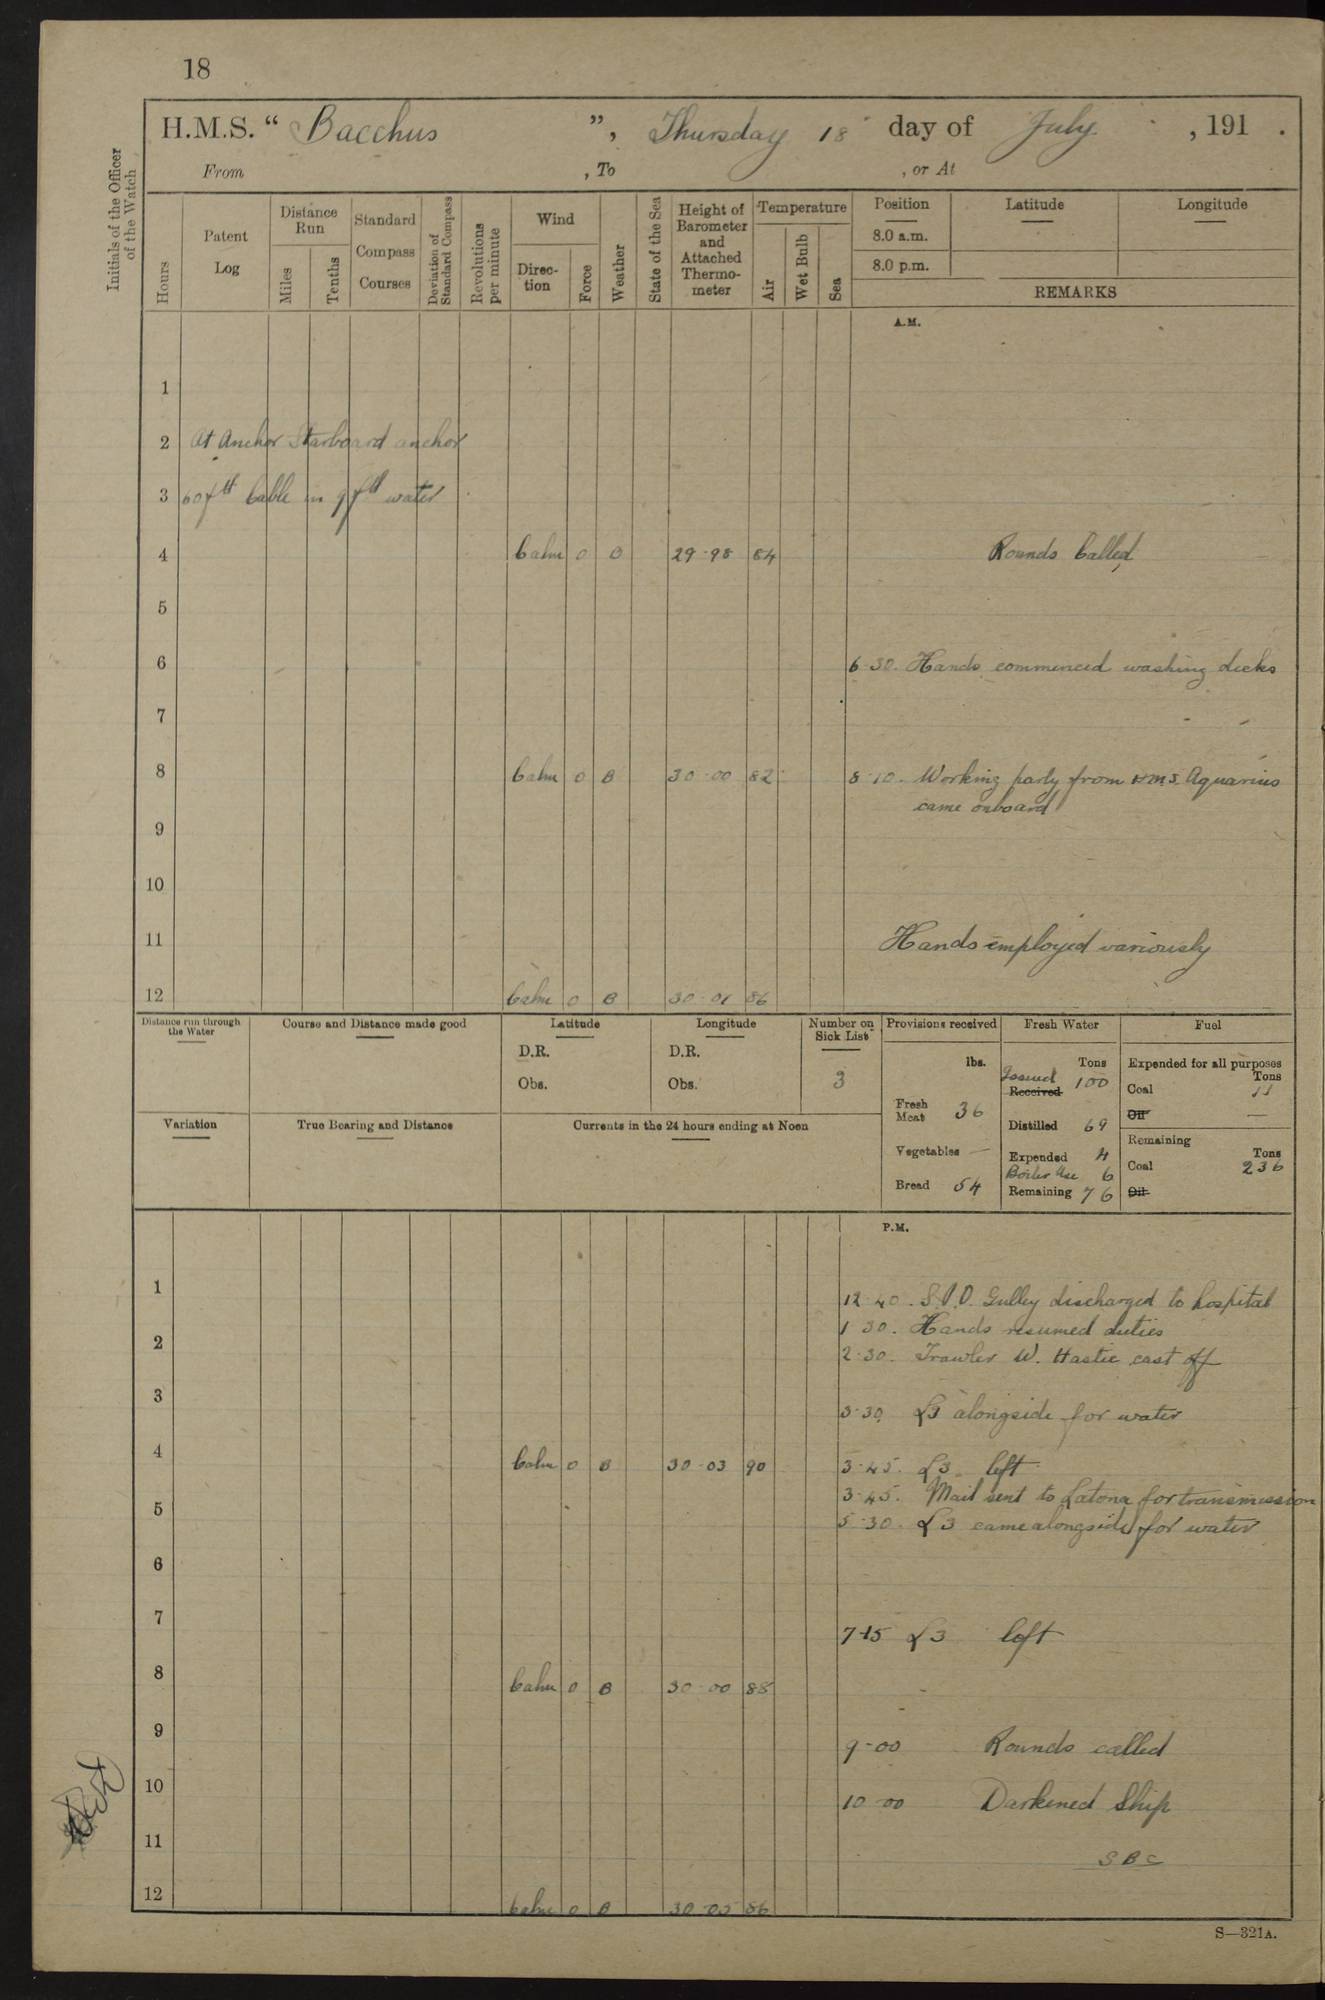 18
H.M.S. “ Bacchus ”, Thursday 18 day of July , 191 .
From , To , or At
Initials of the Officer of the Watch
Hours
Patent Log
Distance Run
Miles
Tenths
Standard Compass Courses
Deviation of Standard Compass
Revolutions per minute
Wind
Direction
Force
Weather
State of the Sea
Height of Barometer and Attached Thermometer
Temperature
Air
Wet Bulb
Sea
Position
Latitude
Longitude
8.0 a.m.
8.0 p.m.
REMARKS
A.M.
1
2 At Anchor Starboard anchor
3 60 fth Cable in 9 fth water
4 Calm 0 B 29·98 84 Rounds Called
5
6 6·30. Hands commenced washing decks
7
8 Calm 0 B 30·00 82 8·10. Working party from H.M.S. Aquarius
came onboard
9
10
11 Hands employed variously
12 Calm 0 B 30·01 86
Distance run through the Water
Course and Distance made good
Latitude
D.R.
Obs.
Longitude
D.R.
Obs.
Number on Sick List
3
Variation
True Bearing and Distance
Currents in the 24 hours ending at Noon
Provisions received
lbs.
Fresh Meat 36
Vegetables —
Bread 54
Fresh Water
Tons
Issued
Received 100
Distilled 69
Expended 4
Boiler Use 6
Remaining 76
Fuel
Expended for all purposes
Tons
Coal 11
Oil —
Remaining
Tons
Coal 236
Oil
P.M.
1 12·40. S.P.O. Gulley discharged to hospital
1·30. Hands resumed duties
2 2·30. Trawler W. Hastie cast off
3 3·30 L3 alongside for water
4 Calm 0 B 30·03 90 3·45. L3 left
3·45. Mail sent to Latona for transmission
5 5·30. L3 came alongside for water
6
7 7·15 L3 left
8 Calm 0 B 30·00 88
9 9·00 Rounds called
10 10·00 Darkened Ship
11 SBC
12 Calm 0 B 30·05 86
S—321A.